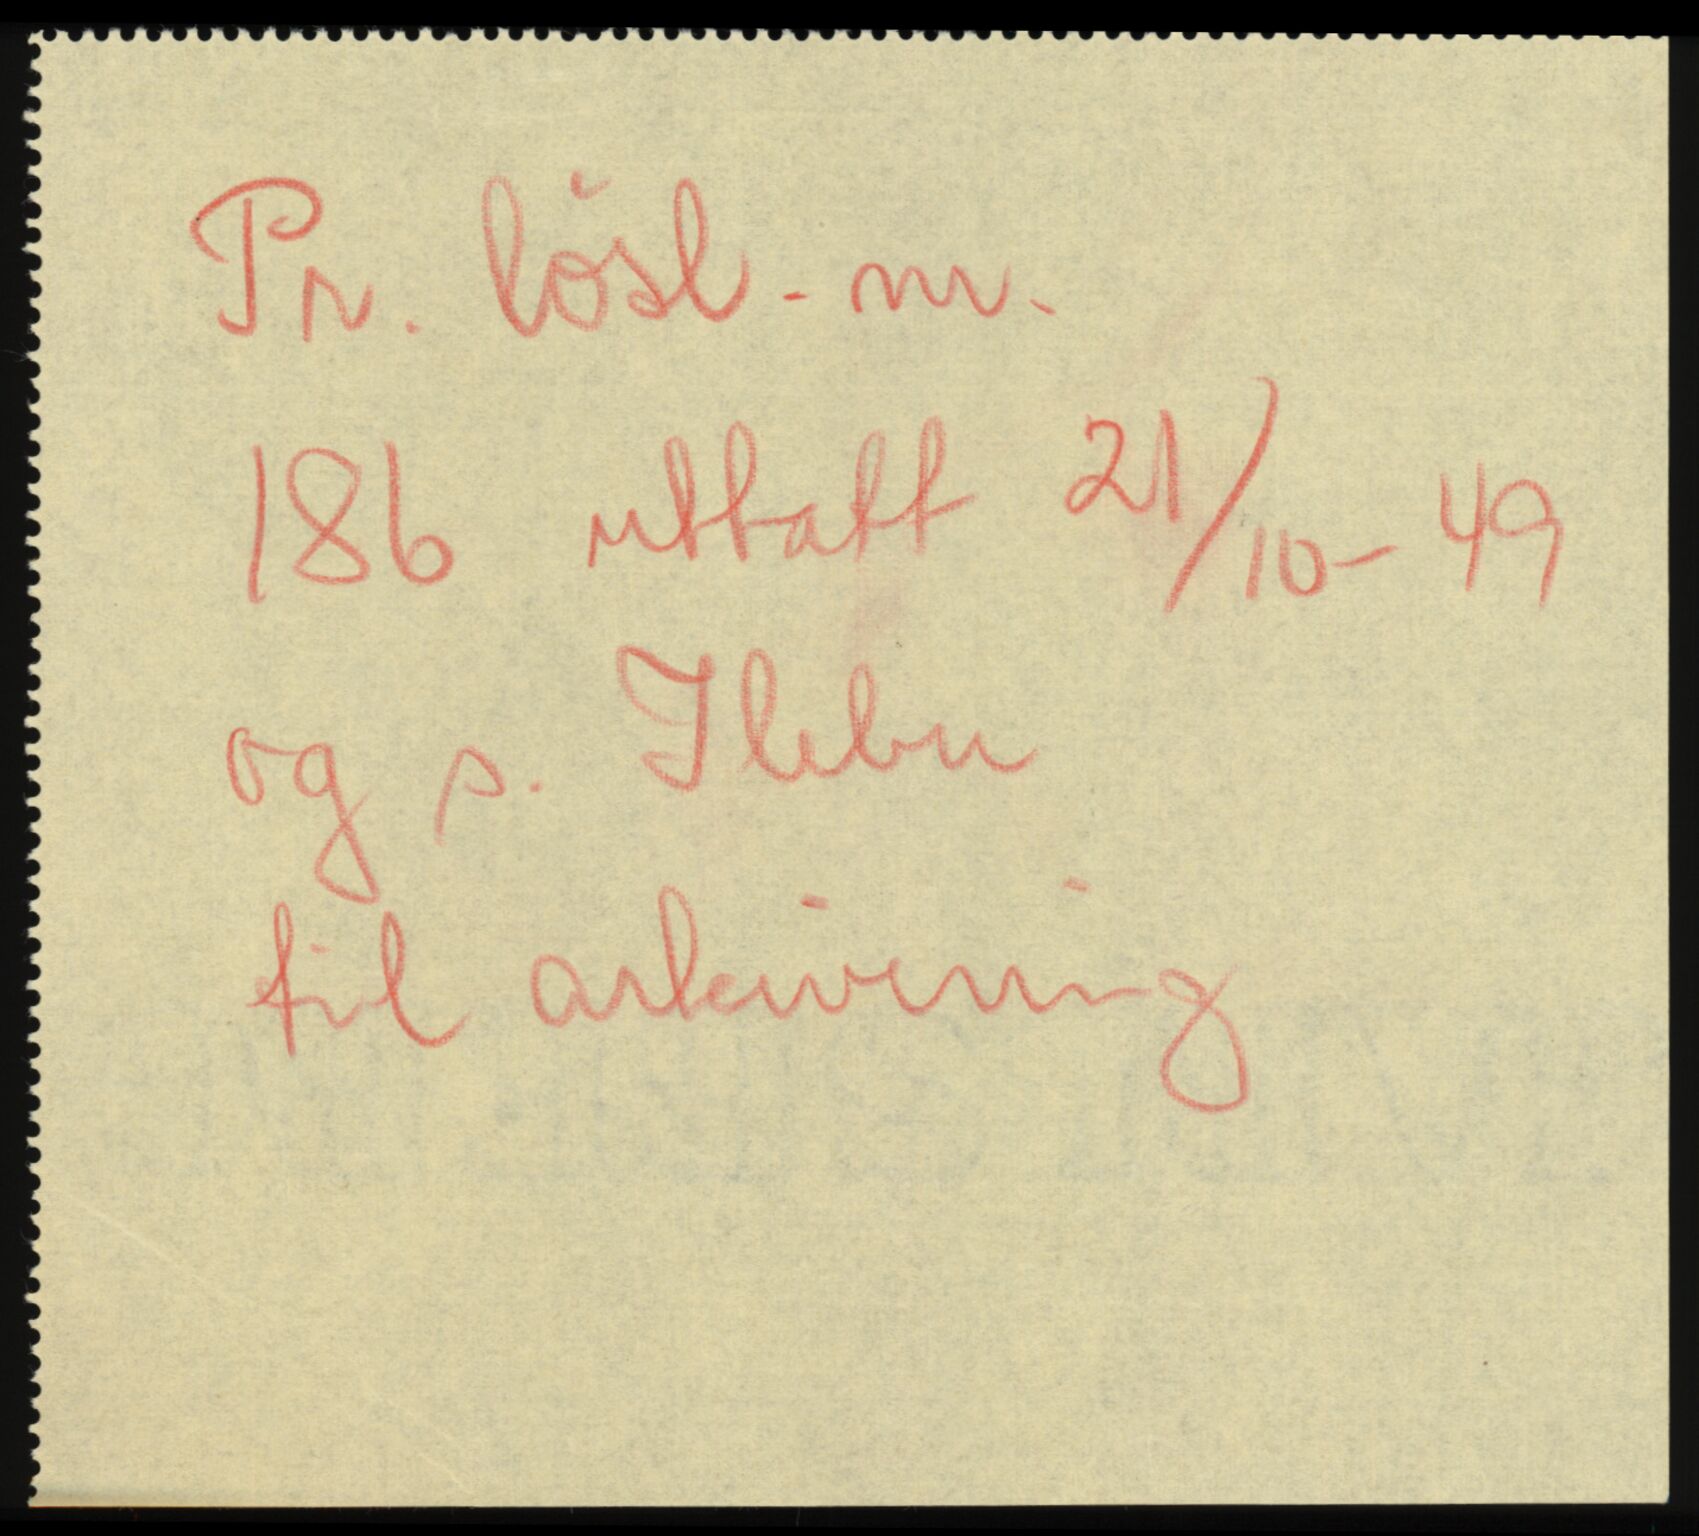 Pr. lösl. nr.
186 uttatt 21/10-49
og s. Ilebu
til arkivering